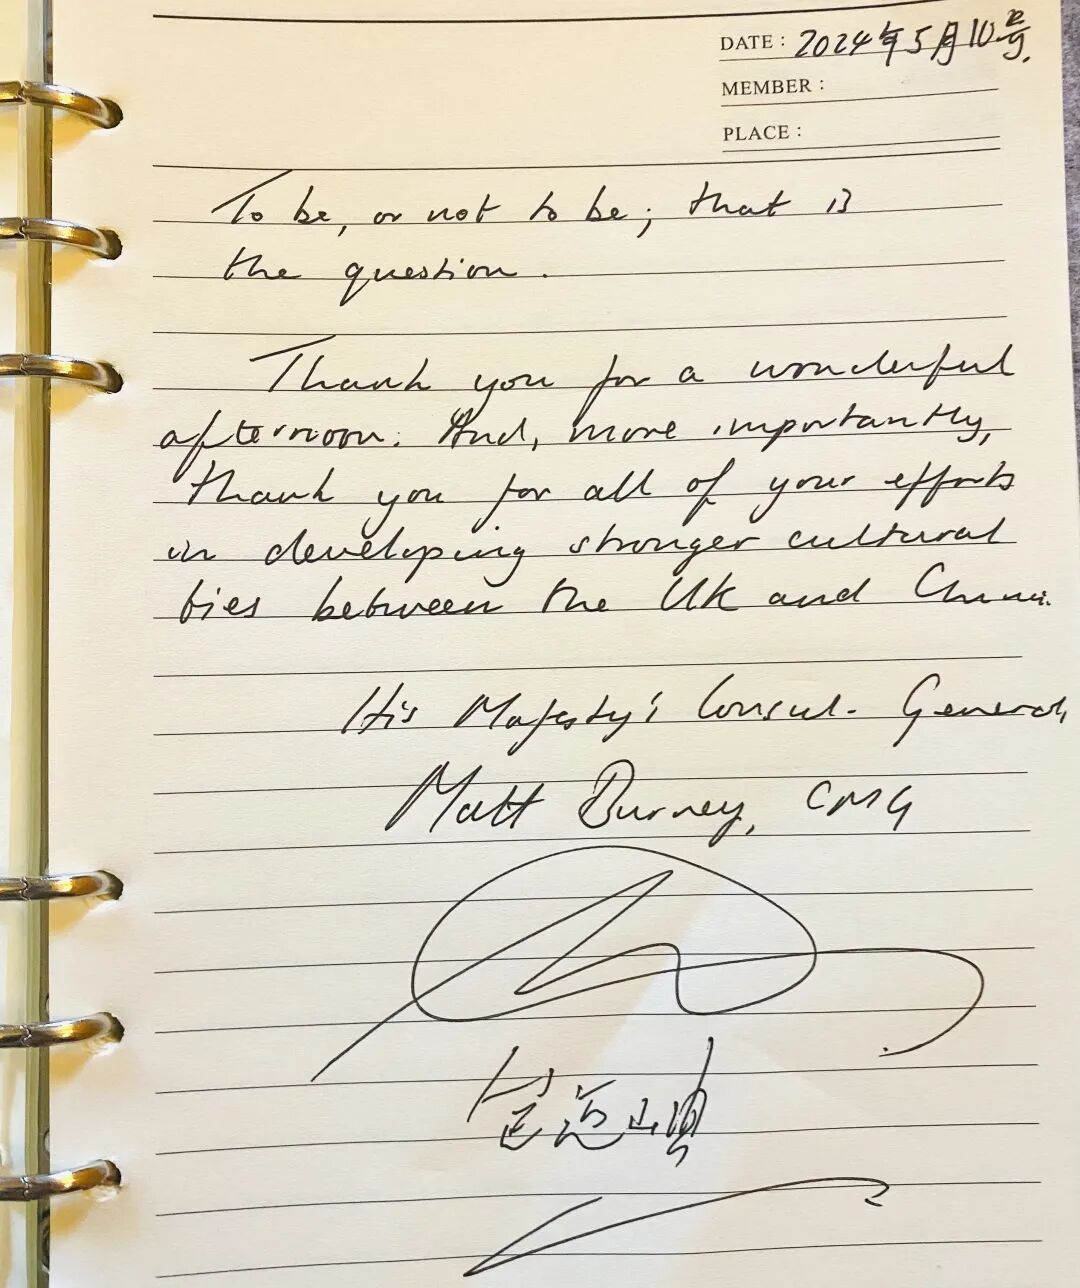 DATE : 2024年5月10号.
MEMBER :
PLACE :
To be, or not to be; that is
the question.
Thank you for a wonderful
afternoon. And, more importantly,
thank you for all of your efforts
in developing stronger cultural
ties between the UK and China.
His Majesty's Consul-General,
Matt Burney, CMG
包迈岫